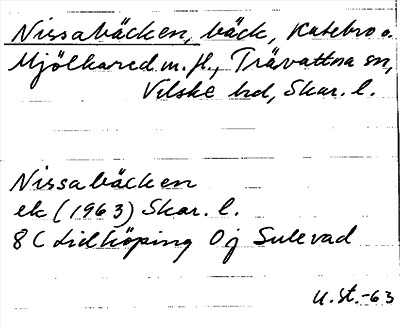 Nissabäcken, bäck, Katebro o.
Mjölkared m. fl., Trävattna sn,
Vilske hd, Skar. l.
Nissabäcken
ek (1963) Skar. l.
8C Lidköping 0j Sulevad
U.St.-63